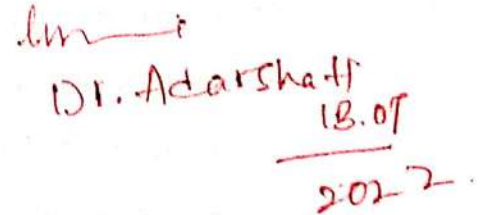 Dr. Adarsha H
18.07
2022.